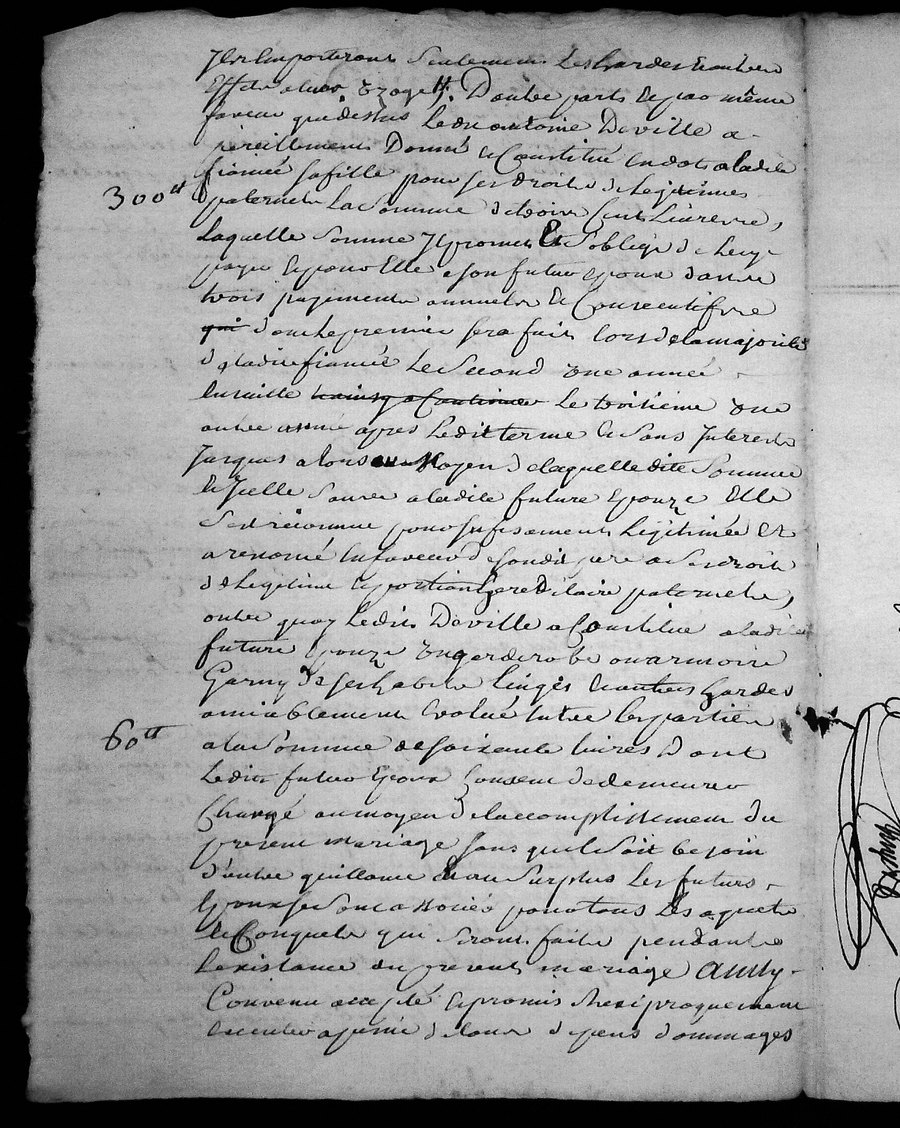 Ilz Emporteront Seulement Les hardes & autres
Effets a leur usage D'autre part & par même
faveur que dessus Ledit antoine Deville a
pareillement Donné & Constitué En dot a ladite
fiancée sa fille pour ses droits de Legitimes
300ᵗᵗ
paternels La Somme de trois Cent Livres,
Laquelle Somme Il promet Et S'oblige de
payer Epoux Elle a son futur epoux dans
trois payements annuels & Consecutifs
qui dont Le premier sera fait lors de la majorité
de ladite fiancée Le Second une année
Ensuitte Le troisieme une
autre année apres Ledit terme & Sans Interets
Jusques alors au Moyen de laquelle dite Somme
& Icelle a ladite future Epouze Elle
S'est reconnue pour sufisament Legitimée Et
a renoncé En faveur de sondit pere a Ses droits
de Legitime & portion hereditaire paternelle,
outre quoy Ledit Deville a Constitué a ladite
future epouze un garderobe ou armoire
Garny de Ses habits linges & autres hardes
amiablement Evalué Entre les parties
60ᵗᵗ
a la Somme de Soixante livres Dont
Ledit futur Epoux Consent de demeurer
Chargé au moyen de l'accomplissement du
present mariage sans qu'il Soit besoin
d'autre quittance & au Surplus Les futurs
Epoux se Sont associés pour tous Les aquets
& Conquets qui Seront faits pendant
L'existance du present mariage ainsy
Convenu accepté & promis Reciproquement
executer a peine de tous depens dommages